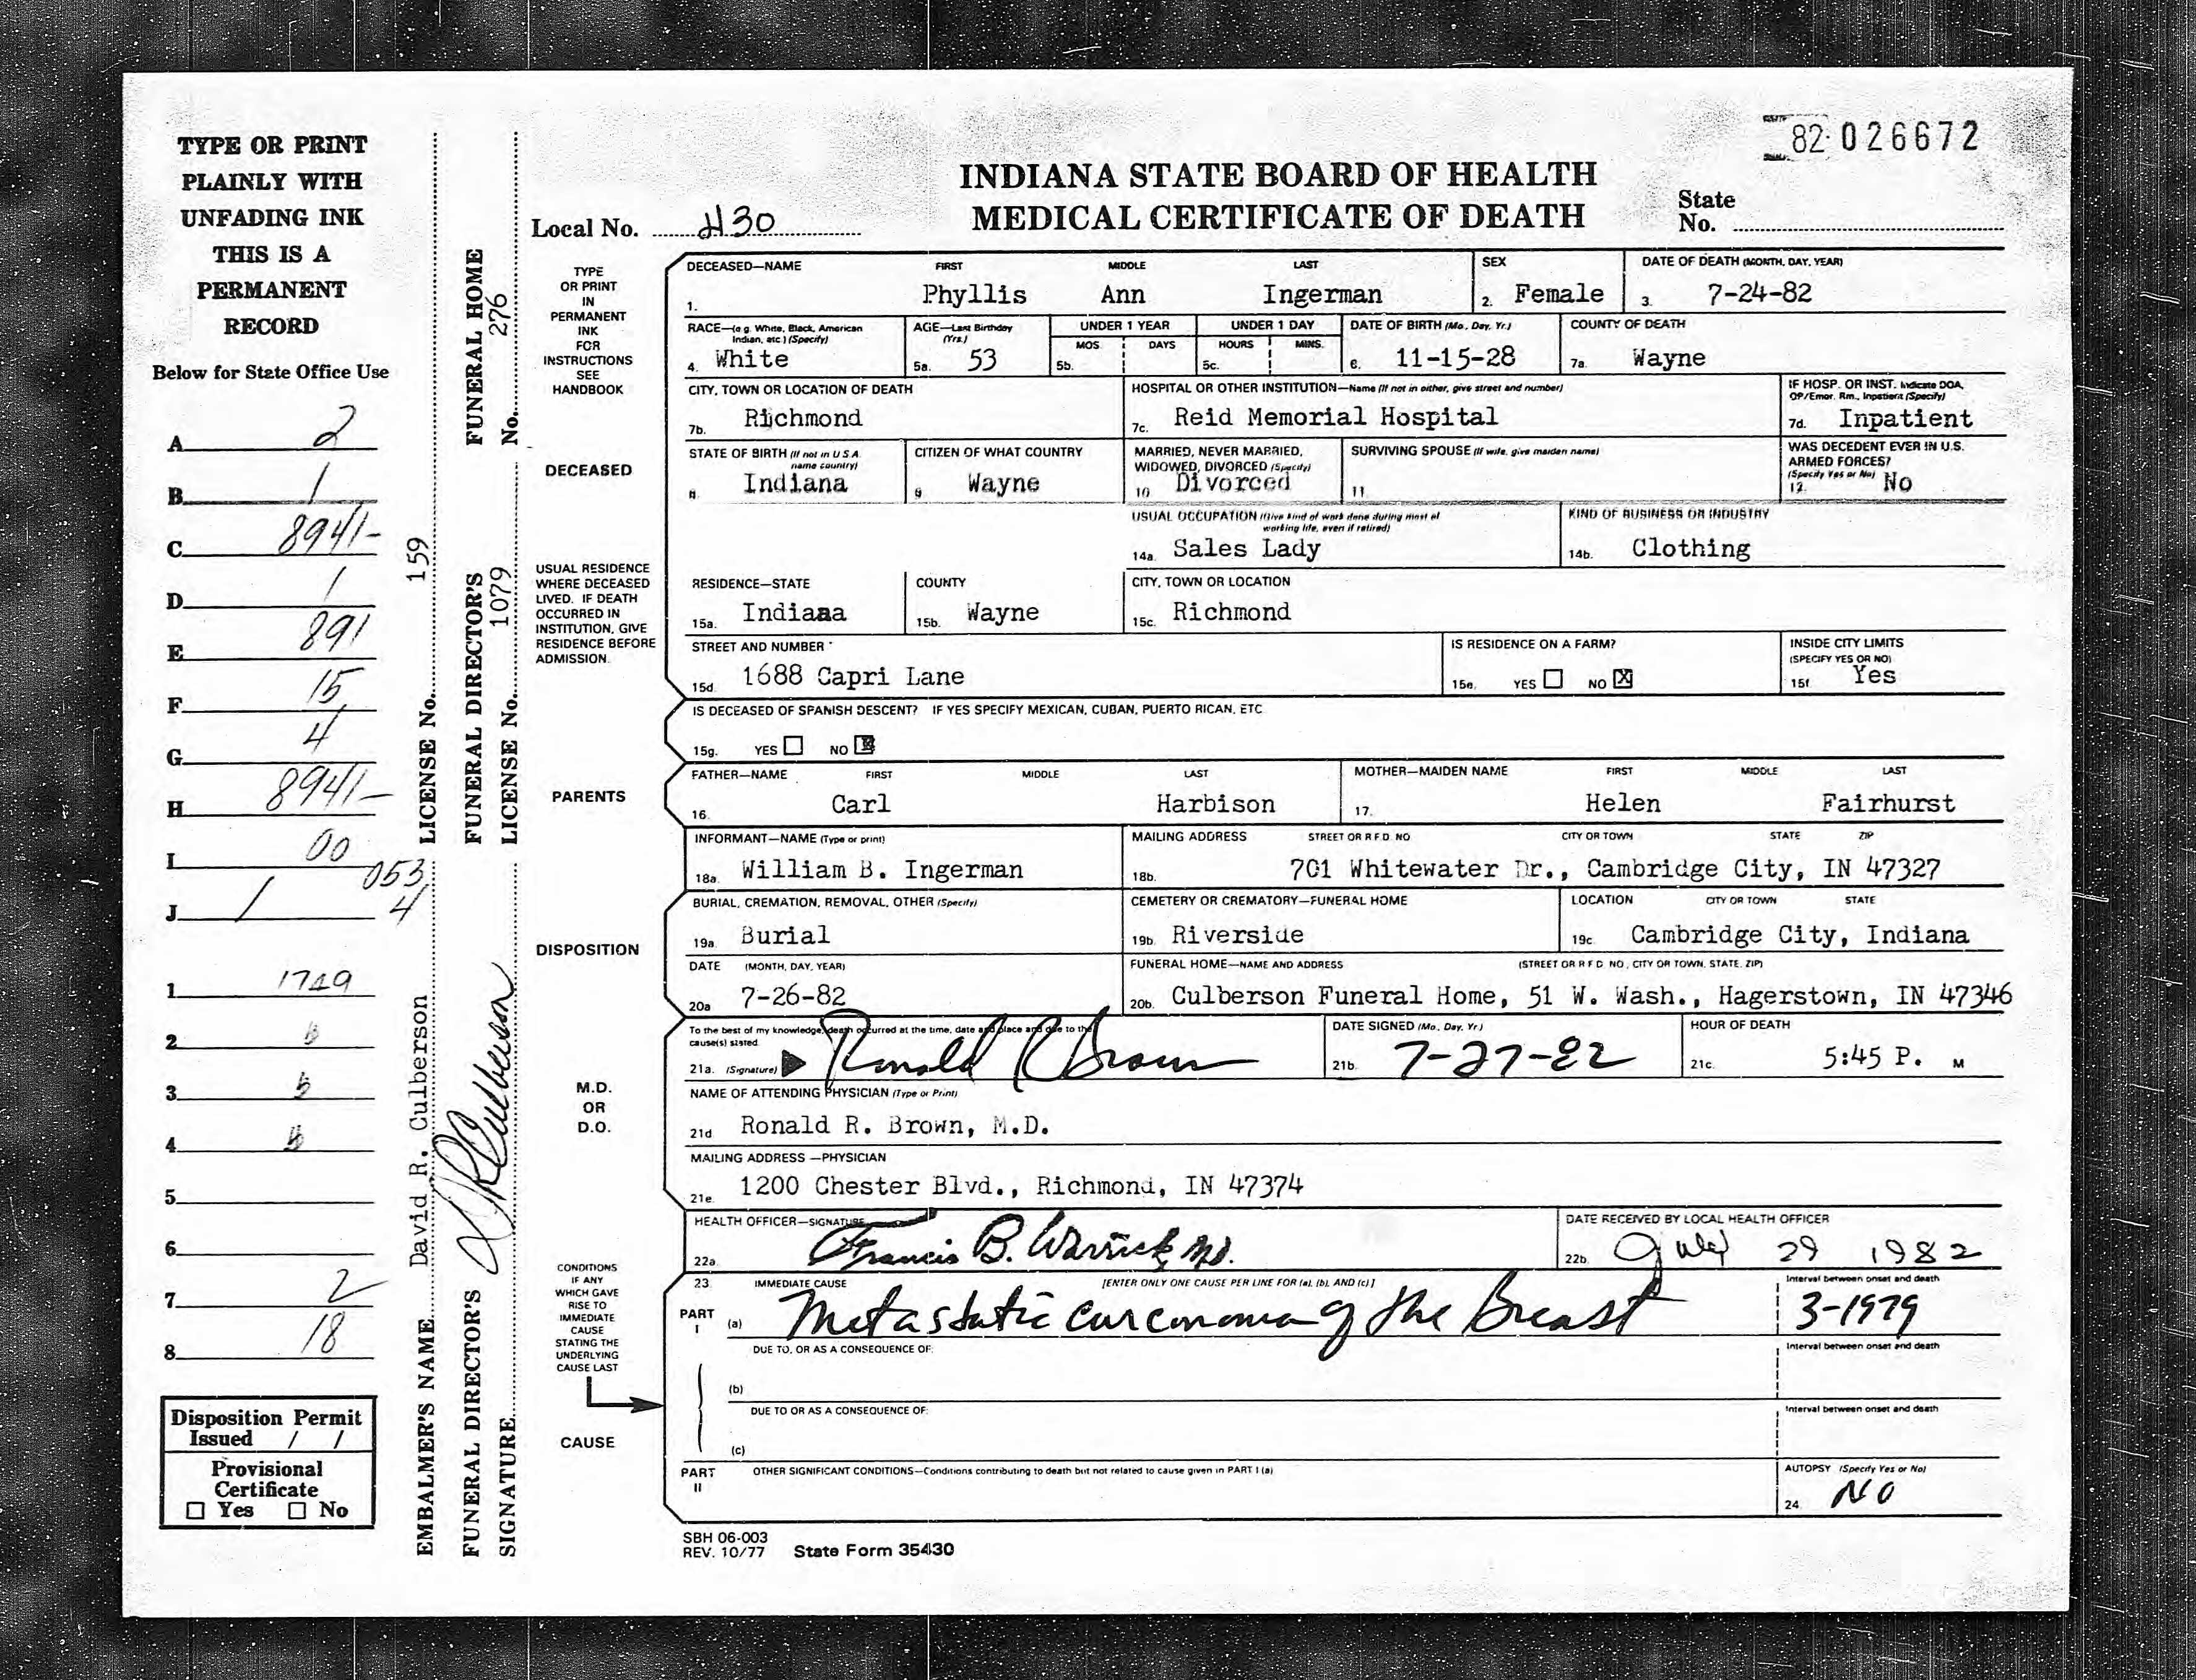 TYPE OR PRINT
PLAINLY WITH
UNFADING INK
THIS IS A
PERMANENT
RECORD
Below for State Office Use
A 2
B 1
C 8941-
D 1
E 891
F 15
G 4
H 8941-
I 00
053
J 1 4
1 1749
2
3
4
5
6
7 2
8 18
Disposition Permit
Issued / /
Provisional
Certificate
☐ Yes ☐ No
EMBALMER'S NAME David R. Culberson LICENSE No. 159
FUNERAL DIRECTOR'S FUNERAL DIRECTOR'S FUNERAL HOME
SIGNATURE D R Culberson LICENSE No. 1079 No. 276
82 026672
INDIANA STATE BOARD OF HEALTH
MEDICAL CERTIFICATE OF DEATH
State
No.
Local No. 430
TYPE
OR PRINT
IN
PERMANENT
INK
FOR
INSTRUCTIONS
SEE
HANDBOOK
DECEASED—NAME FIRST MIDDLE LAST SEX DATE OF DEATH (MONTH, DAY, YEAR)
1. Phyllis Ann Ingerman 2. Female 3. 7-24-82
RACE—(e g. White, Black, American Indian, etc.) (Specify) AGE—Last Birthday (Yrs.) UNDER 1 YEAR UNDER 1 DAY DATE OF BIRTH (Mo., Day, Yr.) COUNTY OF DEATH
MOS. DAYS HOURS MINS.
4. White 5a. 53 5b. 5c. 6. 11-15-28 7a. Wayne
CITY, TOWN OR LOCATION OF DEATH HOSPITAL OR OTHER INSTITUTION—Name (If not in either, give street and number) IF HOSP. OR INST. Indicate DOA, OP/Emer. Rm., Inpatient (Specify)
7b. Richmond 7c. Reid Memorial Hospital 7d. Inpatient
DECEASED
STATE OF BIRTH (If not in U S A. name country) CITIZEN OF WHAT COUNTRY MARRIED, NEVER MARRIED, WIDOWED, DIVORCED (Specify) SURVIVING SPOUSE (If wife, give maiden name) WAS DECEDENT EVER IN U.S. ARMED FORCES? (Specify Yes or No)
8. Indiana 9 Wayne 10 Divorced 11 12. No
USUAL OCCUPATION (Give kind of work done during most of working life, even if retired) KIND OF BUSINESS OR INDUSTRY
14a. Sales Lady 14b. Clothing
USUAL RESIDENCE
WHERE DECEASED
LIVED. IF DEATH
OCCURRED IN
INSTITUTION, GIVE
RESIDENCE BEFORE
ADMISSION.
RESIDENCE—STATE COUNTY CITY, TOWN OR LOCATION
15a. Indiana 15b. Wayne 15c. Richmond
STREET AND NUMBER IS RESIDENCE ON A FARM? INSIDE CITY LIMITS (SPECIFY YES OR NO)
15d. 1688 Capri Lane 15e. YES ☐ NO ☒ 15f. Yes
IS DECEASED OF SPANISH DESCENT? IF YES SPECIFY MEXICAN, CUBAN, PUERTO RICAN, ETC
15g. YES ☐ NO ☒
PARENTS
FATHER—NAME FIRST MIDDLE LAST MOTHER—MAIDEN NAME FIRST MIDDLE LAST
16. Carl Harbison 17. Helen Fairhurst
INFORMANT—NAME (Type or print) MAILING ADDRESS STREET OR R F D. NO CITY OR TOWN STATE ZIP
18a. William B. Ingerman 18b. 701 Whitewater Dr., Cambridge City, IN 47327
DISPOSITION
BURIAL, CREMATION, REMOVAL, OTHER (Specify) CEMETERY OR CREMATORY—FUNERAL HOME LOCATION CITY OR TOWN STATE
19a. Burial 19b. Riverside 19c. Cambridge City, Indiana
DATE (MONTH, DAY, YEAR) FUNERAL HOME—NAME AND ADDRESS (STREET OR R F D NO., CITY OR TOWN, STATE, ZIP)
20a 7-26-82 20b. Culberson Funeral Home, 51 W. Wash., Hagerstown, IN 47346
M.D.
OR
D.O.
To the best of my knowledge, death occurred at the time, date and place and due to the cause(s) stated. DATE SIGNED (Mo., Day, Yr.) HOUR OF DEATH
21a. (Signature) Ronald R Brown 21b. 7-27-82 21c. 5:45 P. M
NAME OF ATTENDING PHYSICIAN (Type or Print)
21d Ronald R. Brown, M.D.
MAILING ADDRESS—PHYSICIAN
21e. 1200 Chester Blvd., Richmond, IN 47374
HEALTH OFFICER—SIGNATURE DATE RECEIVED BY LOCAL HEALTH OFFICER
22a. Francis B. Warrick, MD. 22b. July 29 1982
CONDITIONS
IF ANY
WHICH GAVE
RISE TO
IMMEDIATE
CAUSE
STATING THE
UNDERLYING
CAUSE LAST
CAUSE
23. IMMEDIATE CAUSE [ENTER ONLY ONE CAUSE PER LINE FOR (a), (b), AND (c)] Interval between onset and death
PART I (a) Metastatic carcinoma of the Breast 3-1979
DUE TO, OR AS A CONSEQUENCE OF: Interval between onset and death
(b)
DUE TO OR AS A CONSEQUENCE OF: Interval between onset and death
(c)
PART II OTHER SIGNIFICANT CONDITIONS—Conditions contributing to death but not related to cause given in PART I (a) AUTOPSY (Specify Yes or No)
24. NO
SBH 06-003
REV. 10/77 State Form 35430